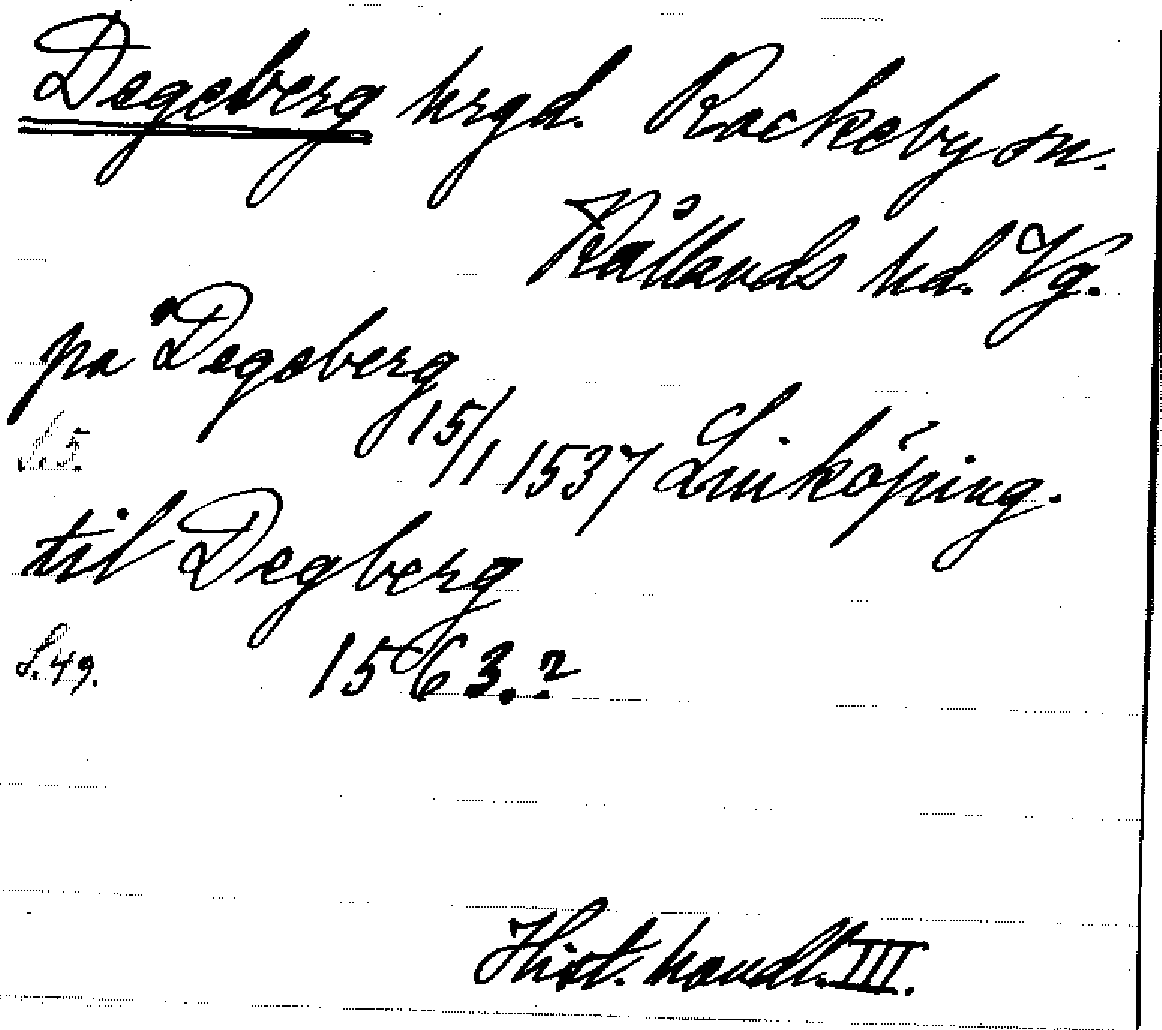 Degeberg hrgd. Rackeby sn.
Kållands hd. Vg.
på Degeberg
15/1 1537 Linköping.
S. 5.
til Degberg
S. 49. 1563.?
Hist. handl. III.